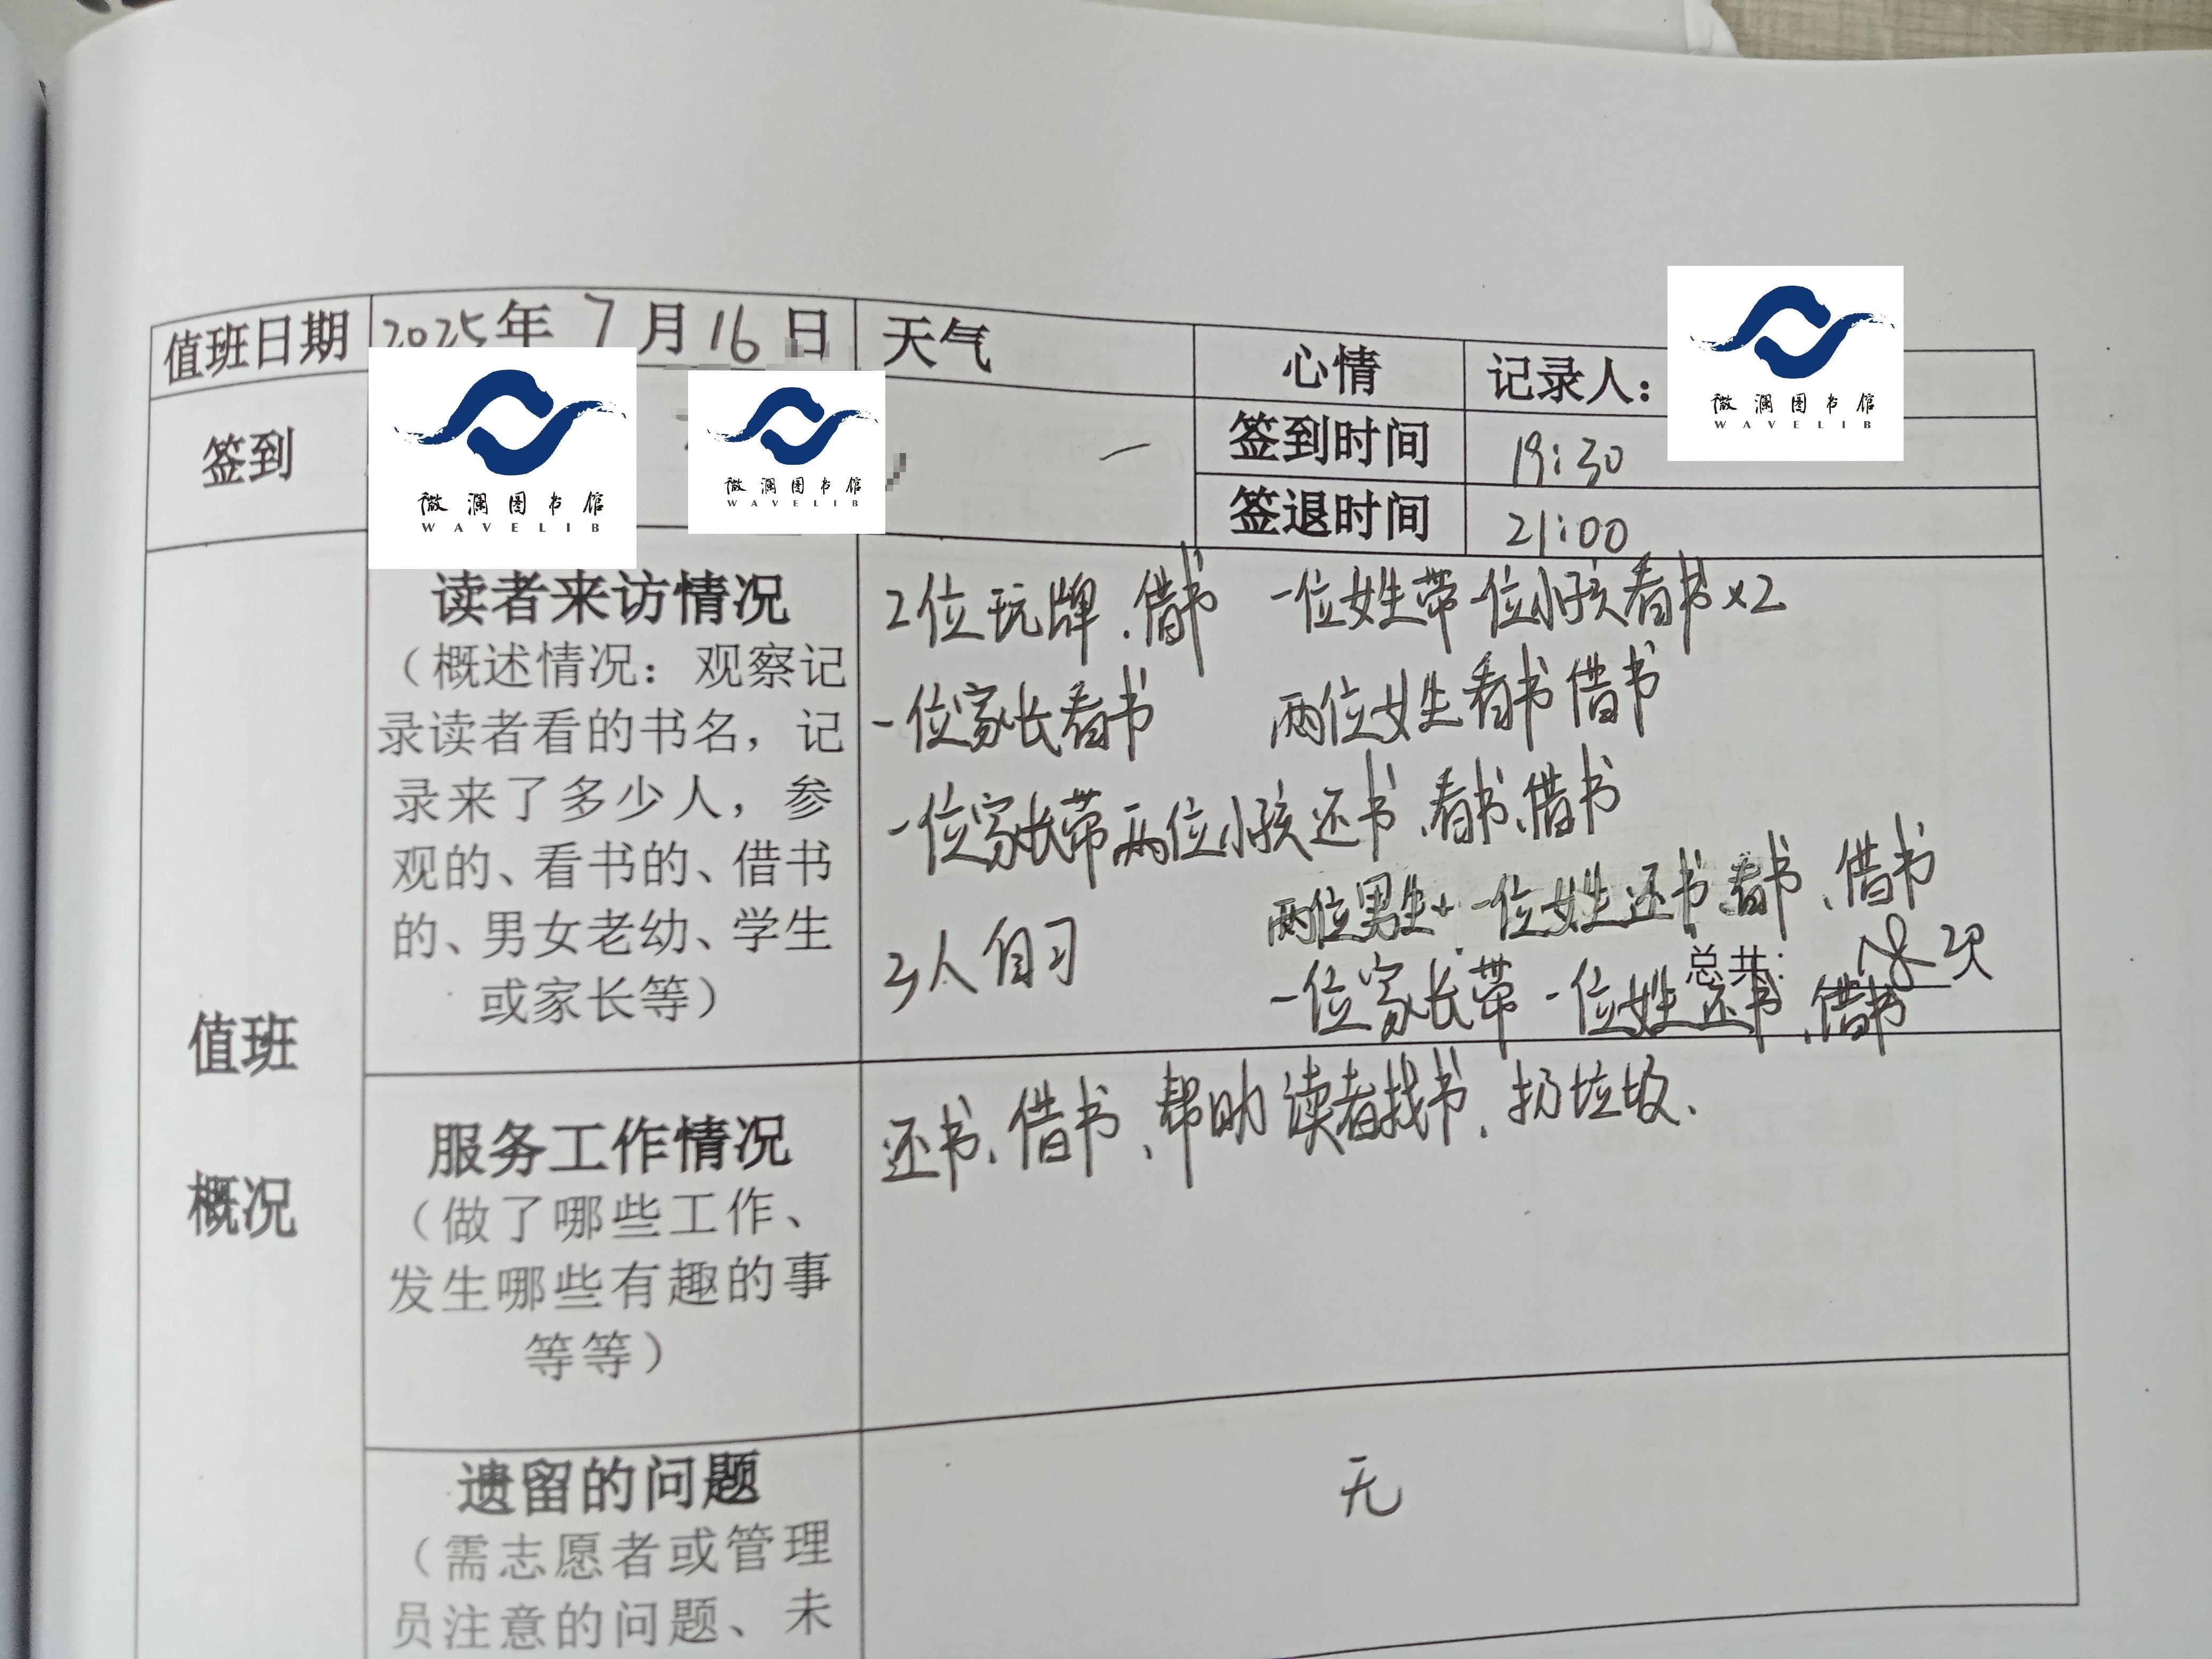 值班日期 2025年 7月16日 天气 心情 记录人：
微澜图书馆
WAVELIB
签到
微澜图书馆
WAVELIB
微澜图书馆
WAVELIB
签到时间 19:30
签退时间 21:00
值班
概况
读者来访情况
（概述情况：观察记
录读者看的书名，记
录来了多少人，参
观的、看书的、借书
的、男女老幼、学生
或家长等）
2位玩牌、借书 一位女生带一位小孩看书×2
一位家长看书 两位女生看书借书
一位家长带两位小孩还书、看书、借书
两位男生+一位女生还书、看书、借书
3人自习
总共： 次
一位家长带一位女生还书、借书
服务工作情况
（做了哪些工作、
发生哪些有趣的事
等等）
还书、借书、帮助读者找书、扔垃圾、
遗留的问题
（需志愿者或管理
员注意的问题、未
无